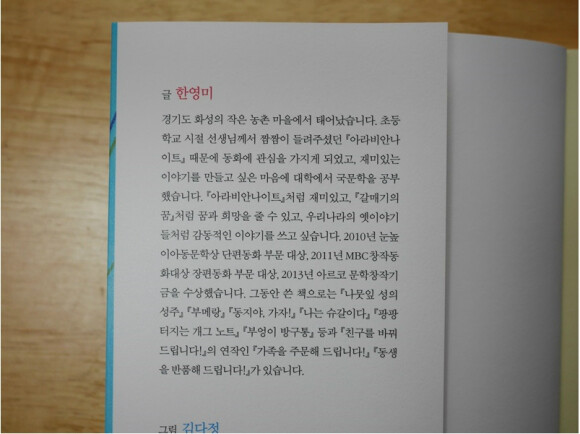 글 한영미
경기도 화성의 작은 농촌 마을에서 태어났습니다. 초등
학교 시절 선생님께서 짬짬이 들려주셨던 『아라비안나
이트』 때문에 동화에 관심을 가지게 되었고, 재미있는
이야기를 만들고 싶은 마음에 대학에서 국문학을 공부
했습니다. 『아라비안나이트』처럼 재미있고, 『갈매기의
꿈』처럼 꿈과 희망을 줄 수 있고, 우리나라의 옛이야기
들처럼 감동적인 이야기를 쓰고 싶습니다. 2010년 눈높
이아동문학상 단편동화 부문 대상, 2011년 MBC창작동
화대상 장편동화 부문 대상, 2013년 아르코 문학창작기
금을 수상했습니다. 그동안 쓴 책으로는 『나뭇잎 성의
성주』 『부메랑』 『동지야, 가자!』 『나는 슈갈이다』 『팡팡
터지는 개그 노트』 『부엉이 방구통』 등과 『친구를 바꿔
드립니다!』의 연작인 『가족을 주문해 드립니다!』 『동생
을 반품해 드립니다!』가 있습니다.
그림 김다정